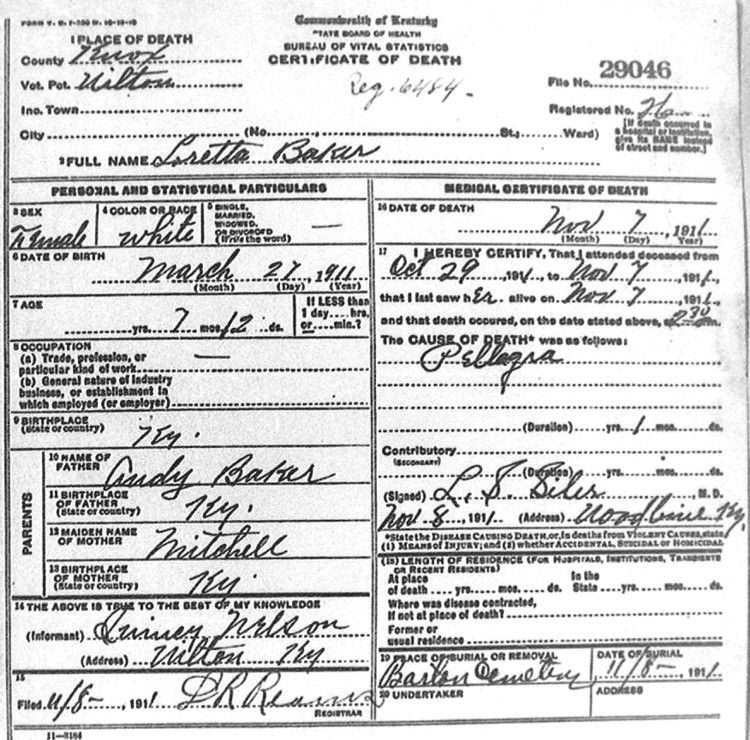 FORM V. S. 1-350 M. 10-18-10
Commonwealth of Kentucky
STATE BOARD OF HEALTH
BUREAU OF VITAL STATISTICS
CERTIFICATE OF DEATH
1 PLACE OF DEATH
County Knox
Vot. Pct. Wilton
Inc. Town
City (No. , St.; Ward)
Reg. 6484
File No. 29046
Registered No.
[If death occurred in a hospital or institution, give its NAME instead of street and number.]
2 FULL NAME Loretta Baker
PERSONAL AND STATISTICAL PARTICULARS
3 SEX Female
4 COLOR OR RACE White
5 SINGLE, MARRIED, WIDOWED, OR DIVORCED (Write the word) —
6 DATE OF BIRTH
March 27, 1911
(Month) (Day) (Year)
7 AGE
yrs. 7 mos. 12 ds.
If LESS than 1 day.... hrs. or.... min.?
8 OCCUPATION
(a) Trade, profession, or particular kind of work —
(b) General nature of industry business, or establishment in which employed (or employer)
9 BIRTHPLACE (State or country) Ky.
PARENTS
10 NAME OF FATHER Andy Baker
11 BIRTHPLACE OF FATHER (State or country) Ky.
12 MAIDEN NAME OF MOTHER Mitchell
13 BIRTHPLACE OF MOTHER (State or country) Ky.
14 THE ABOVE IS TRUE TO THE BEST OF MY KNOWLEDGE
(Informant) Nelson
(Address) Wilton Ky
15
Filed 11/8-, 1911 D R Reams
REGISTRAR
11-3184
MEDICAL CERTIFICATE OF DEATH
16 DATE OF DEATH
Nov 7, 1911
(Month) (Day) (Year)
17 I HEREBY CERTIFY, That I attended deceased from
Oct 29 1911, to Nov 7, 1911,
that I last saw her alive on Nov 7, 1911,
and that death occured, on the date stated above, at 2 30 m.
The CAUSE OF DEATH* was as follows:
Pellagra
(Duration) yrs. 1 mos. ds.
Contributory
(SECONDARY)
(Duration) yrs. mos. ds.
(Signed) L. S. Siler, M.D.
Nov 8, 1911 (Address) Woodbine Ky.
*State the DISEASE CAUSING DEATH, or, in deaths from VIOLENT CAUSES, state (1) MEANS OF INJURY; and (2) whether ACCIDENTAL, SUICIDAL or HOMICIDAL
(18) LENGTH OF RESIDENCE (FOR HOSPITALS, INSTITUTIONS, TRANSIENTS OR RECENT RESIDENTS)
At place of death .... yrs. .... mos. .... ds. In the State .... yrs. .... mos. .... ds.
Where was disease contracted, If not at place of death?
Former or usual residence
19 PLACE OF BURIAL OR REMOVAL Barton Cemetery
DATE OF BURIAL 11/8-, 1911
20 UNDERTAKER
ADDRESS